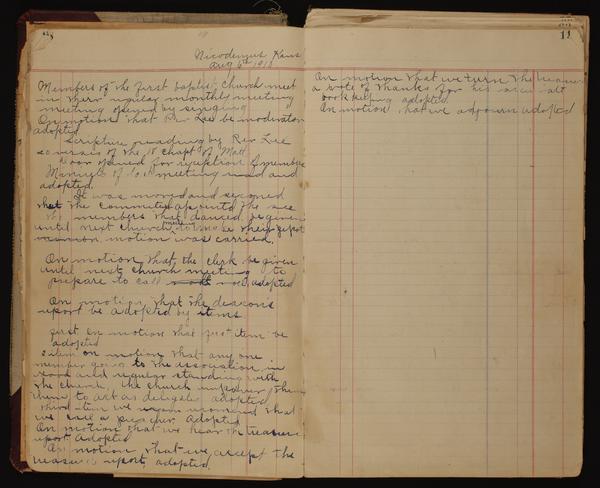 Nicodemus Kans
Aug 6th 1918
Members of the first baptist church meet
in their regular monthly meeting
meeting opened by singing
On motion that Rev Lee be moderator
adopted
Scripture reading by Rev Lee
verses of the 18 chapt of Matt
Door opened for reception of members
Minutes of last meeting read and
adopted.
It was moved and seconed
that the committee appointed to see
the members that danced be given
until next church meeting to make their report
motion was carried.
On motion that the clerk be given
until next church meeting to
prepare to call roll adopted
On motion that the deacon's
report be adopted by items
first On motion that first item be
adopted
2 item on motion that any one
member going to the association in
good and regular standing with
the church, the church impower them
them to act as delegate adopted
third item we recomend that
we call a preacher Adopted
On motion that we hear the treasure
report Adopted
On motion that we accept the
treasure report, adopted.
11
On motion that we turn the treasure
a vote of thanks for his
book keeping adopted
On motion that we adjourn adopted